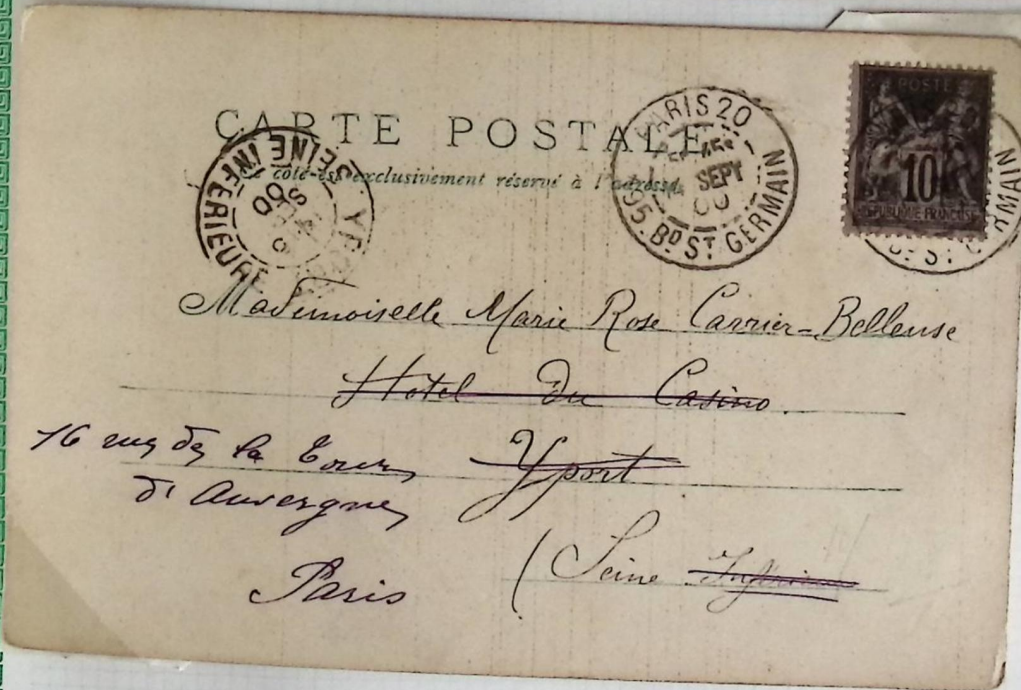 CARTE POSTALE
Ce côté est exclusivement réservé à l'adresse
PARIS 20
SEPT
00
95. BD ST GERMAIN
POSTE
10
REPUBLIQUE FRANCAISE
ST GERMAIN
YPORT
SEINE INFERIEURE
SEPT
00
Mademoiselle Marie Rose Carrier-Belleuse
Hotel du Casino.
Yport
(Seine Inférieure
16 rue de la Tour
d'Auvergne
Paris